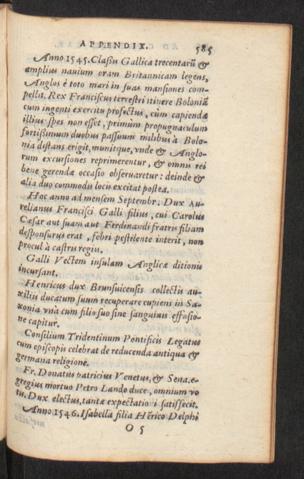 APPENDIX. 585
Anno 1545. Classis Gallica trecentarũ &
amplius nauium oram Britannicam legens,
Anglos è toto mari in suas mansiones com-
pellit. Rex Franciscus terrestri itinere Boloniã
cum ingenti exercitu profectus, cum capiendæ
illius spes non esset, primùm propugnaculum
fortissimum duobus passuum milibus à Bolo-
nia distans erigit, munitque, vnde & Anglo-
rum excursiones reprimerentur, & omnis rei
bene gerendæ occasio obseruaretur: deinde &
alia duo commodis locis excitat postea.
Hoc anno ad mensem Septembr. Dux Au-
relianus Francisci Galli filius, cui Carolus
Cæsar aut suam aut Ferdinandi fratris filiam
desponsurus erat, febri pestilente interit, non
procul à castris regiis.
Galli Vectem insulam Anglicæ ditionis
incursant.
Henricus dux Brunsuicensis collectis au-
xiliis ducatum suum recuperare cupiens in Sa-
xonia vnà cum filio suo sine sanguinis effusio-
ne capitur.
Consilium Tridentinum Pontificis Legatus
cum episcopis celebrat de reducenda antiqua &
germana religione.
Fr. Donatus patricius Venetus, & Sena. e-
gregius mortuo Petro Lando duce, omnium vo
tis Dux electus, tantæ expectationi satisfecit.
Anno 1546. Isabella filia Hẽrico Delphi
O 5